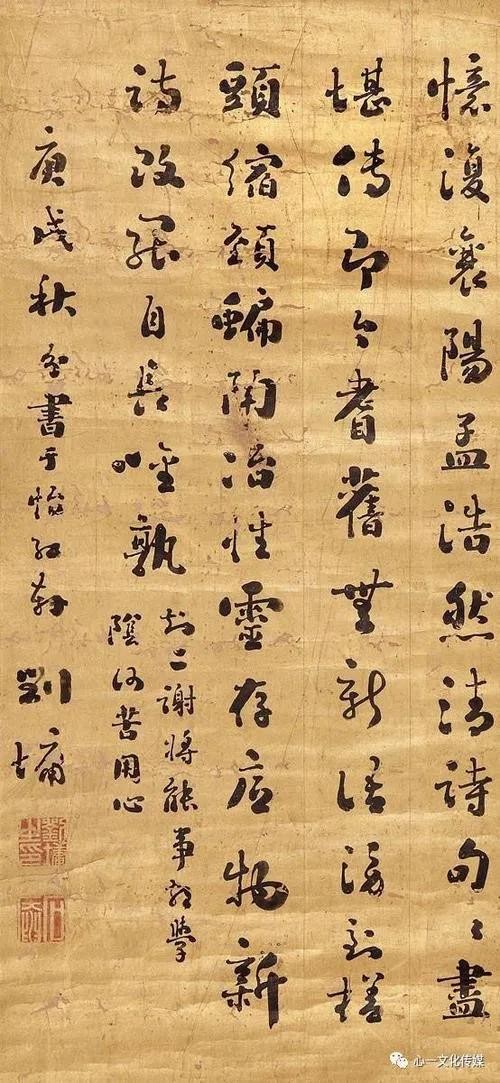 憶復襄陽孟浩然清詩句〻盡
堪傳即今耆舊無新語漫釣槎
頭縮頸鯿陶冶性靈存底物新
詩改罷自長吟孰
知二謝將能事頗學
陰何苦用心
庚戌秋書于怡劉墉
劉墉之印
石庵
心一文化传媒